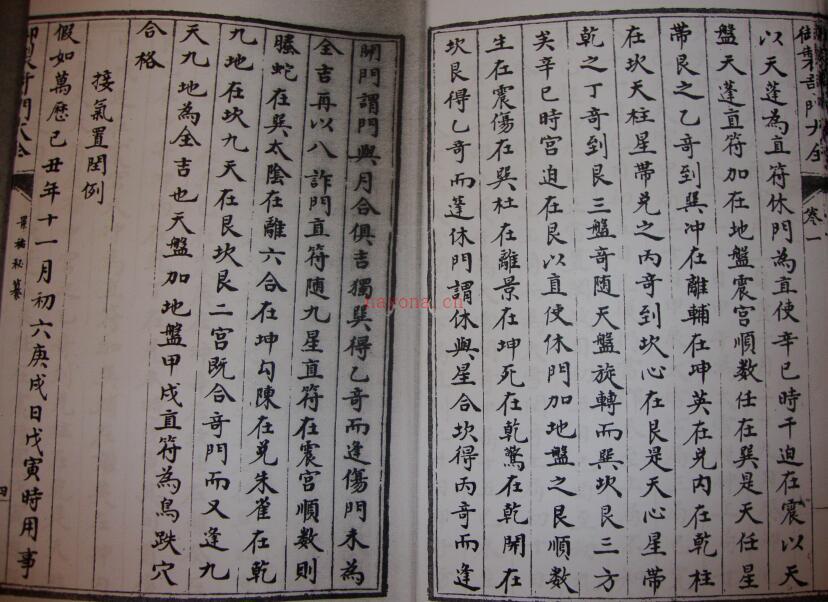 卷一
以天蓬為直符休門為直使辛巳時干迫在震以天
盤天蓬直符加在地盤震宮順數任在巽是天任星
帶艮之乙奇到巽沖在離輔在坤英在兌內在乾柱
在坎天柱星帶兌之丙奇到坎心在艮是天心星帶
乾之丁奇到艮三盤奇隨天盤旋轉而巽坎艮三方
美辛巳時宮迫在艮以直使休門加地盤之艮順數
生在震傷在巽杜在離景在坤死在乾驚在乾開在
坎艮得乙奇而蓬休門謂休與星合坎得丙奇而逢
開門謂門與月合俱吉獨巽得乙奇而逢傷門未為
全吉再以八詐門直符隨九星直符在震宮順數則
螣蛇在巽太陰在離六合在坤勾陳在兌朱雀在乾
九地在坎九天在艮坎艮二宮既合奇門而又逢九
天九地為全吉也天盤加地盤甲戌直符為鳥跌穴
合格
接氣置閏例
假如萬歷己丑年十一月初六庚戌日戊寅時用事
景祐秘纂
四
narona.cn